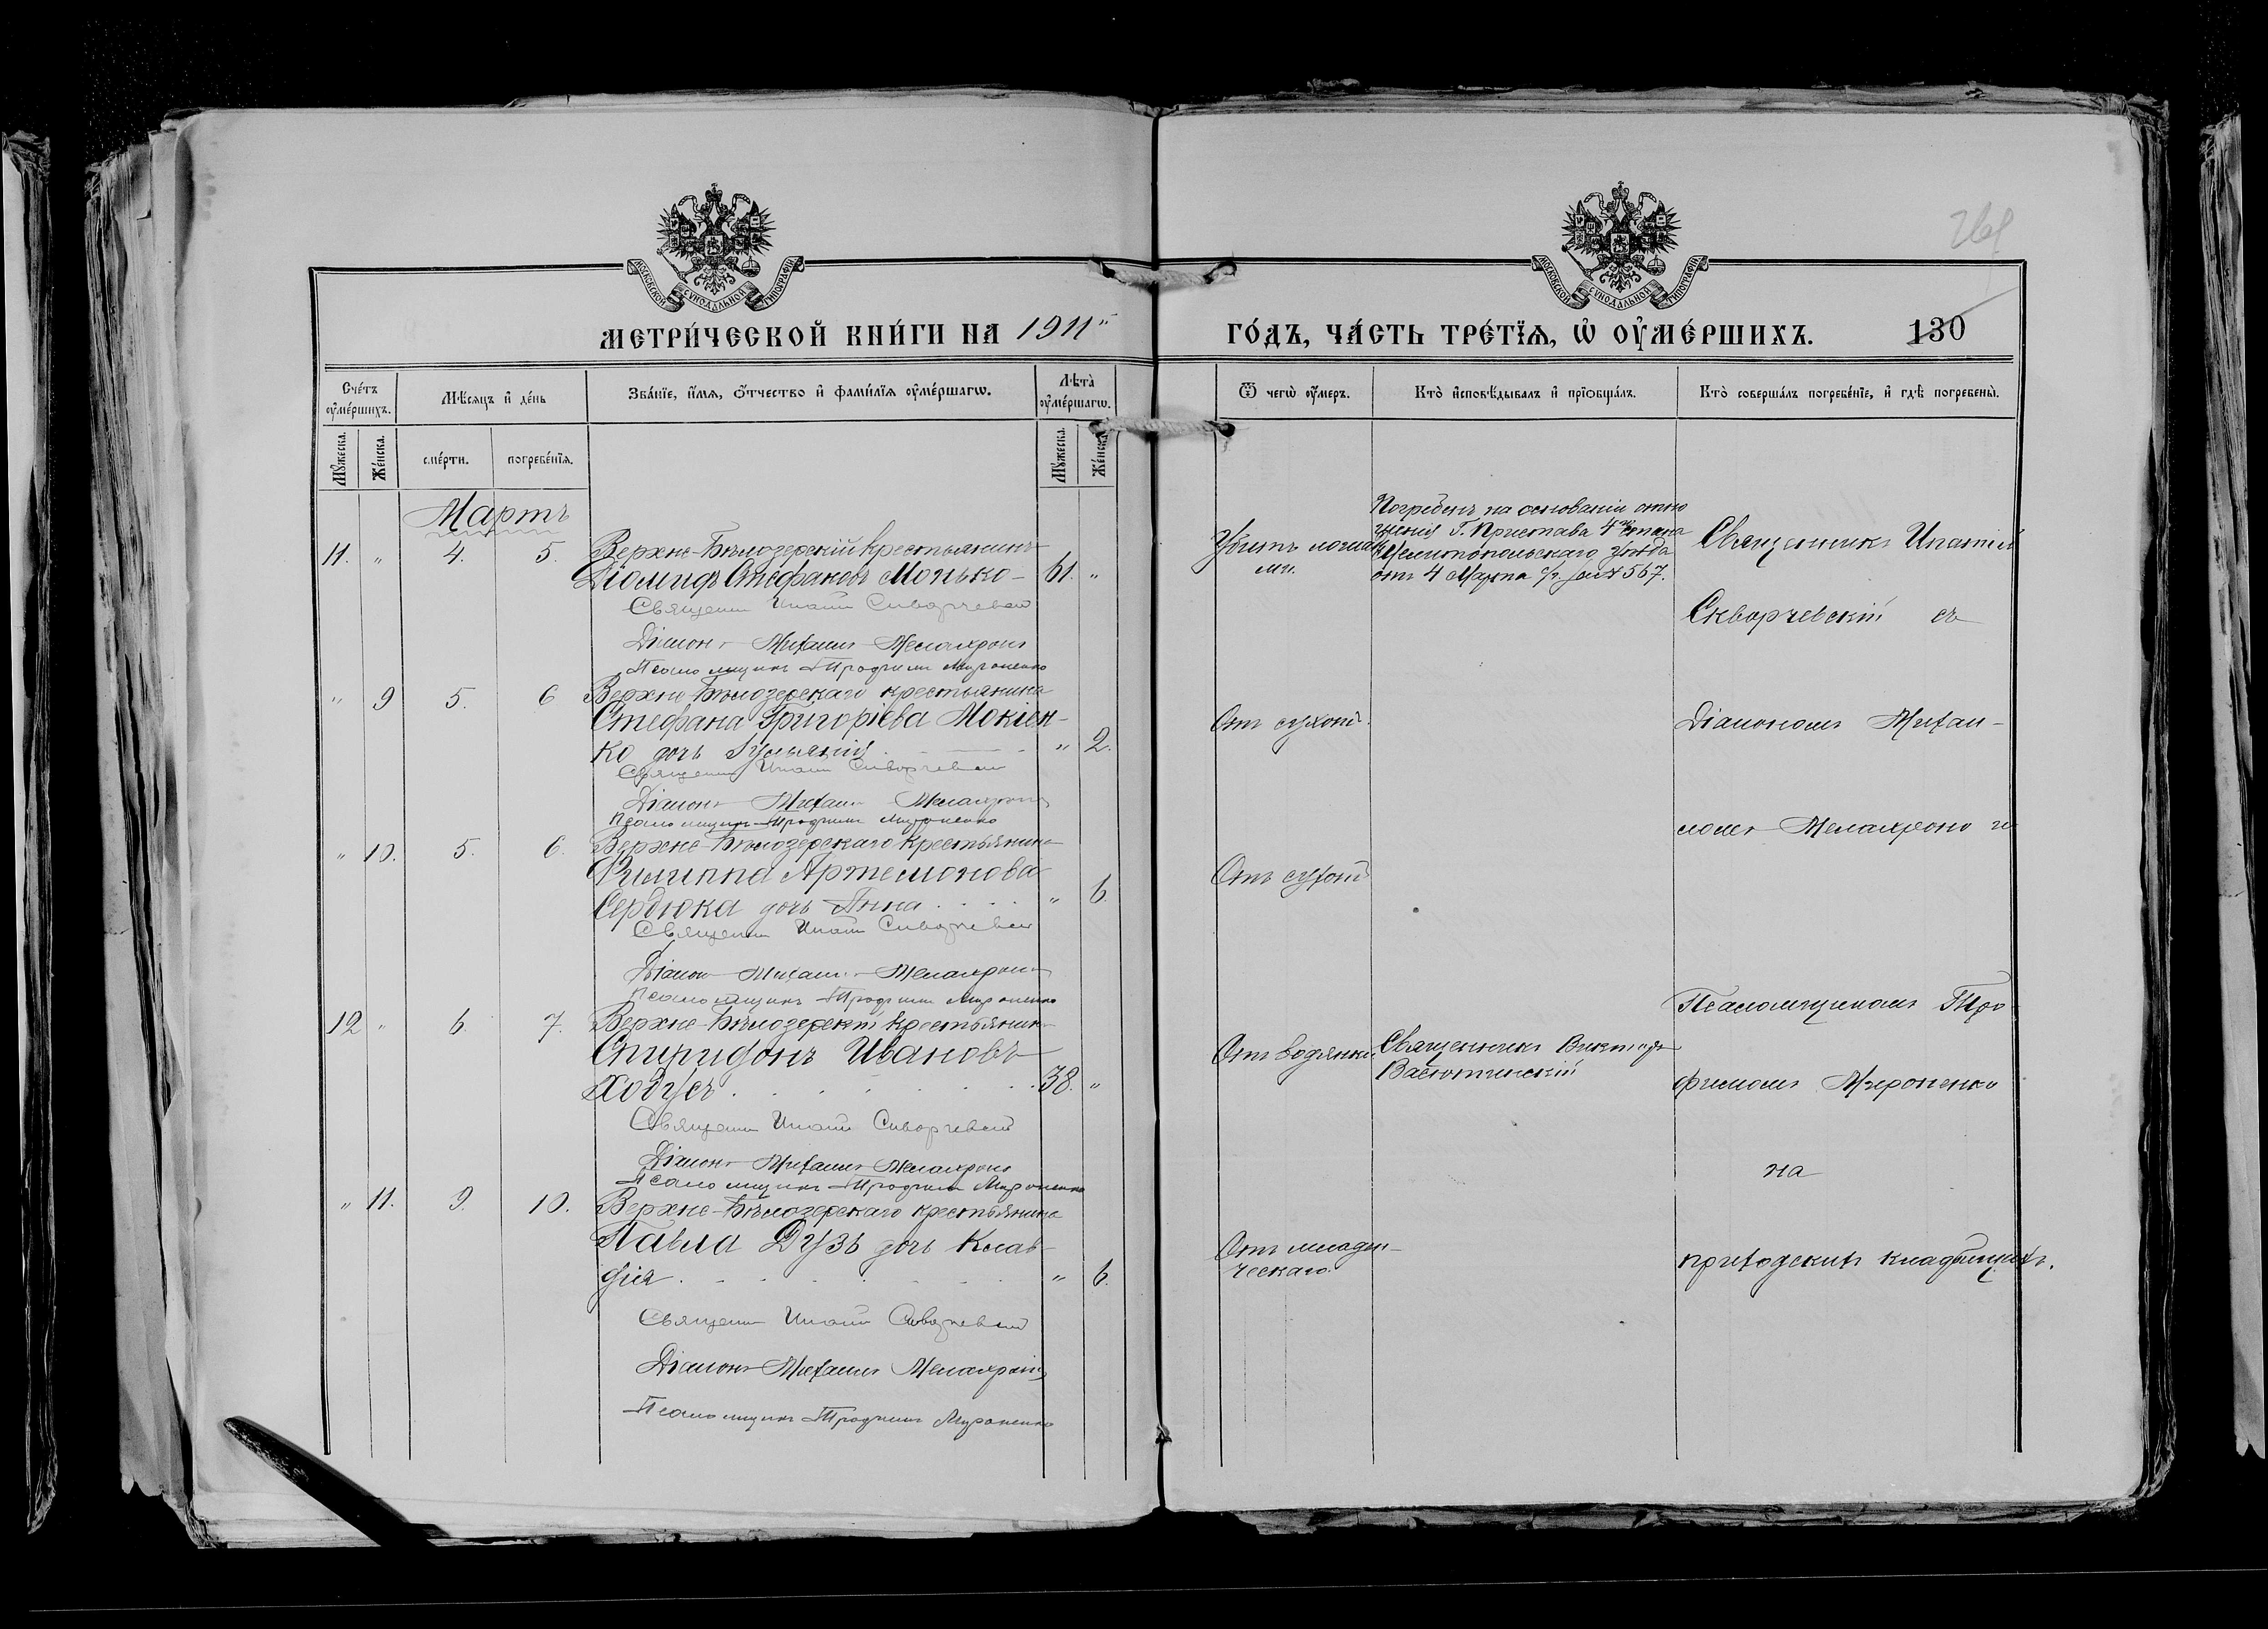 МОСКОВСКОЙ СѴНОДАЛЬНОЙ ТИПОГРАФІИ
МОСКОВСКОЙ СѴНОДАЛЬНОЙ ТИПОГРАФІИ
МЕТРИ́ЧЕСКОЙ КНИ́ГИ НА 1911
ГО́ДЪ, ЧА́СТЬ ТРЕ́ТЇѦ, Ѡ҆ ОУ҆МЕ́РШИХЪ. 130
Сче́тъ оу҆ме́ршихъ.
Мѣ́сѧцъ и҆ де́нь
Зва́нїе, и҆́мѧ, ѻ҆́тчество и҆ фами́лїѧ оу҆ме́ршагѡ.
Лѣ́та оу҆ме́ршагѡ.
Ѿ чегѡ̀ оу҆́меръ.
Кто̀ и҆сповѣ́дывалъ и҆ прїѡбща́лъ.
Кто̀ соверша́лъ погребе́нїе, и҆ гдѣ̀ погребены̀.
Мꙋ́жеска.
Же́нска.
сме́рти.
погребе́нїѧ.
Мꙋ́жеска.
Же́нска.
Мартъ
11. " 4. 5. Верхне-Бѣлозерскій крестьянинъ
Діомидъ Стефановъ Монько- 61. "
Священникъ Ипатій Скворчевскій
Діаконъ Михаилъ Мелахроно
Псаломщикъ Трофимъ Мироненко
Погребенъ на основаніи отно
шенія Г. Пристава 4го стана
Мелитопольскаго уѣзда
отъ 4 Марта с/г. за № 567.
Убитъ лошадь
ми.
Священникъ Ипатій
Скворчевскій съ
" 9 5. 6 Верхне-Бѣлозерскаго крестьянина
Стефана Григоріева Мокіен-
ко дочь Іуліанія " 2.
Священникъ Ипатій Скворчевскій
Діаконъ Михаилъ Мелахроно
Псаломщикъ Трофимъ Мироненко
Отъ сухотъ.
Діакономъ Михаи-
ломъ Мелахроно и
" 10. 5. 6. Верхне-Бѣлозерскаго крестьянина
Филиппа Артемонова
Сердюка дочь Анна " 6.
Священникъ Ипатій Скворчевскій
Діаконъ Михаилъ Мелахроно
Псаломщикъ Трофимъ Мироненко
Отъ сухотъ
Псаломщикомъ Тро-
12 " 6. 7. Верхне-Бѣлозерскій крестьянинъ
Спиридонъ Ивановъ
Ходусъ 38. "
Священникъ Ипатій Скворчевскій
Діаконъ Михаилъ Мелахроно
Псаломщикъ Трофимъ Мироненко
Отъ водянки.
Священникъ Викторъ
фимомъ Мироненко
на
" 11. 9. 10. Верхне-Бѣлозерскаго крестьянина
Павла Дузь дочь Клав-
дія " 6.
Священникъ Ипатій Скворчевскій
Діаконъ Михаилъ Мелахроно
Псаломщикъ Трофимъ Мироненко
Отъ младен-
ческаго.
приходскихъ кладбищахъ.